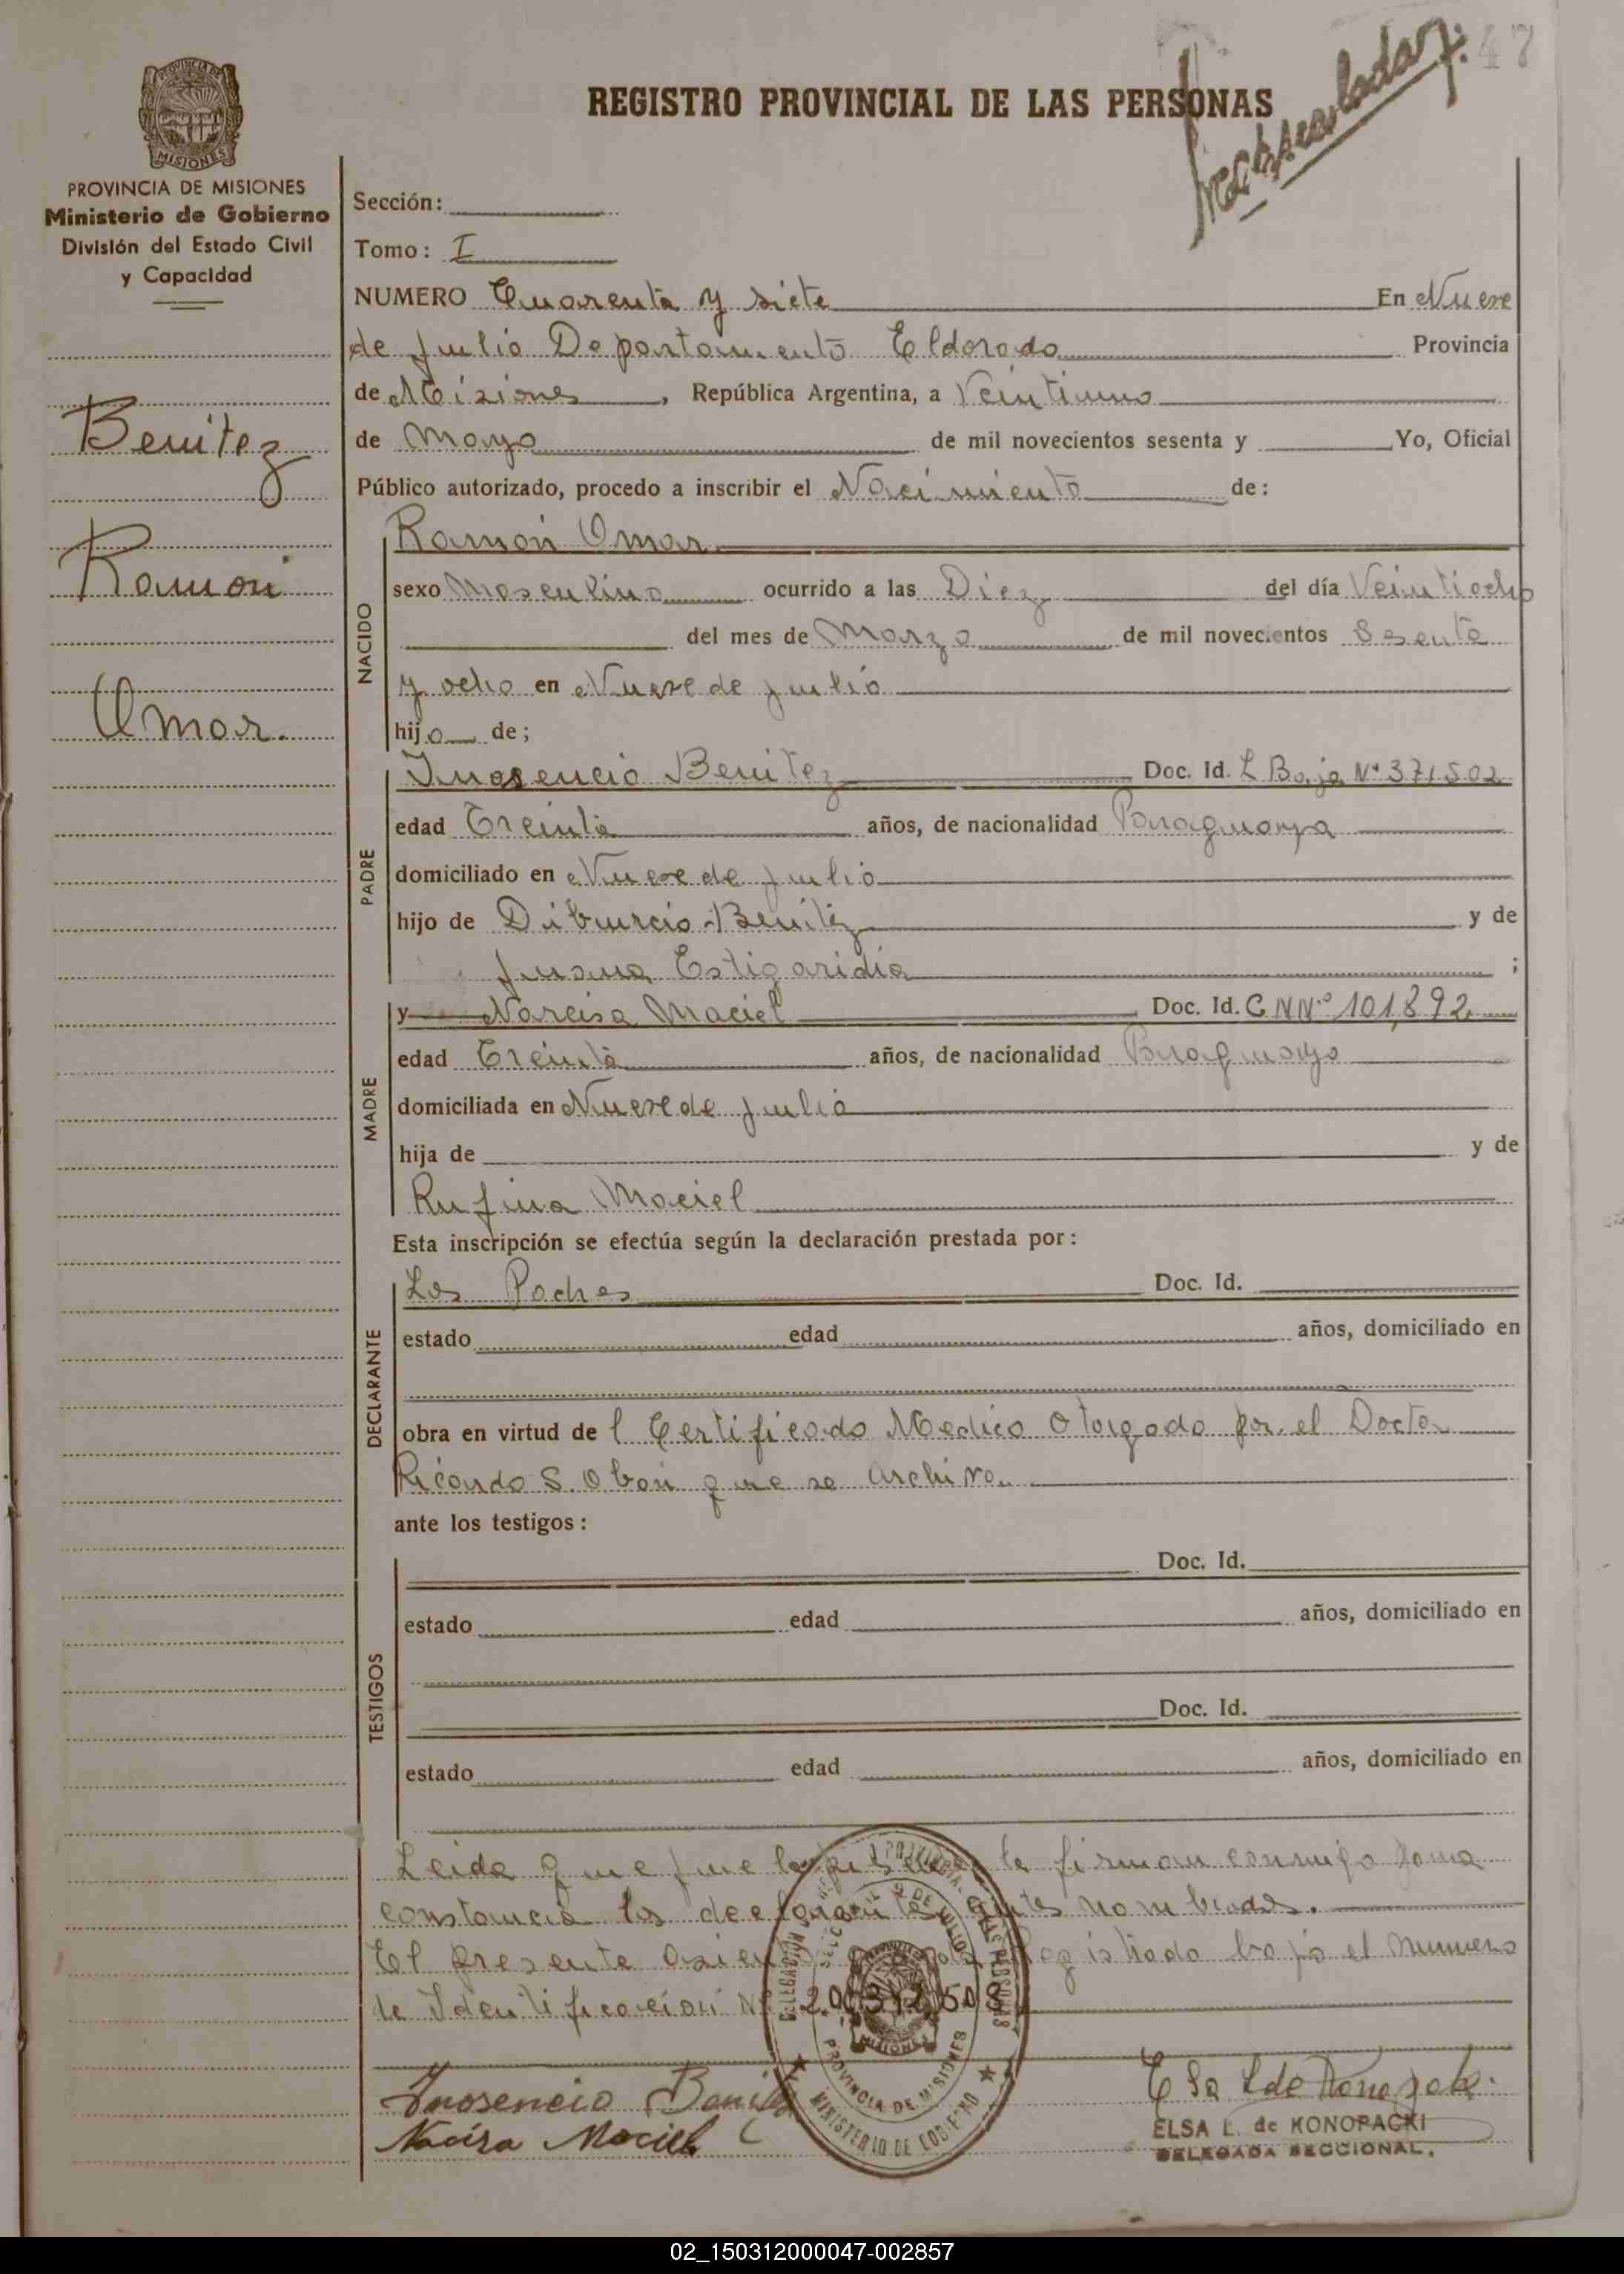 47
REGISTRO PROVINCIAL DE LAS PERSONAS
PROVINCIA DE
MISIONES
PROVINCIA DE MISIONES
Ministerio de Gobierno
División del Estado Civil
y Capacidad
Benitez
Ramon
Omar.
Sección:
Tomo: I
NUMERO Cuarenta y siete En Nueve
de Julio Departamento Eldorado Provincia
de Misiones, República Argentina, a Veintiuno
de Mayo de mil novecientos sesenta y Yo, Oficial
Público autorizado, procedo a inscribir el Nacimiento de:
NACIDO
Ramon Omar
sexo Masculino ocurrido a las Diez del día Veintiocho
del mes de Marzo de mil novecientos Sesenta
y ocho en Nueve de Julio
hijo de;
PADRE
Inosencio Benitez Doc. Id. L Baja Nº 371502
edad Treinta años, de nacionalidad Paraguaya
domiciliado en Nueve de Julio
hijo de Diburcio Benitez y de
Juana Estigaridia ;
MADRE
y Narcisa Maciel Doc. Id. C NNº 101,892
edad Treinta años, de nacionalidad Paraguaya
domiciliada en Nueve de Julio
hija de y de
Rufina Maciel
Esta inscripción se efectúa según la declaración prestada por:
DECLARANTE
Los Padres Doc. Id.
estado edad años, domiciliado en
obra en virtud de l Certificado Medico Otorgado por el Doctor
Ricardo S. Obon que se Archiva
ante los testigos:
TESTIGOS
Doc. Id.
estado edad años, domiciliado en
Doc. Id.
estado edad años, domiciliado en
Leida que fue la presente la firman conmigo para
constancia los declarantes antes nombrados.
El presente Registrado bajo el Numero
de Identificacion Nº
PROVINCIA DE MISIONES
MINISTERIO DE GOBIERNO
Inosencio Benitez
Maciel
ELSA L. de KONOPACKI
DELEGADA SECCIONAL.
02_150312000047-002857